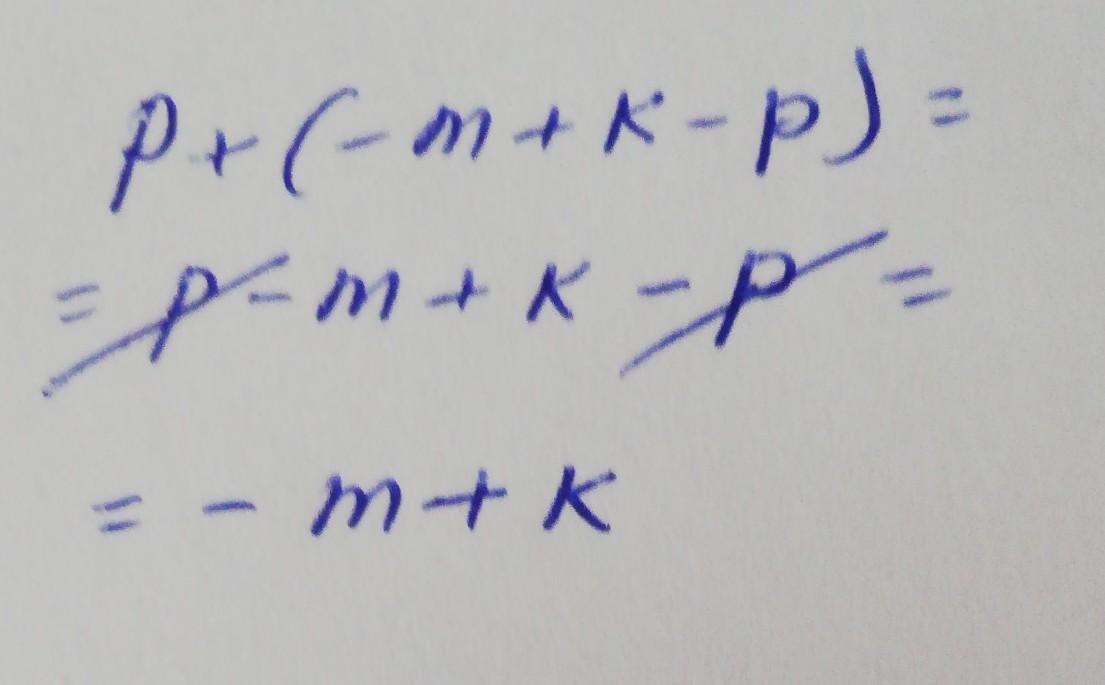 p + (- m + k - p) =
= p - m + k - p =
= - m + k